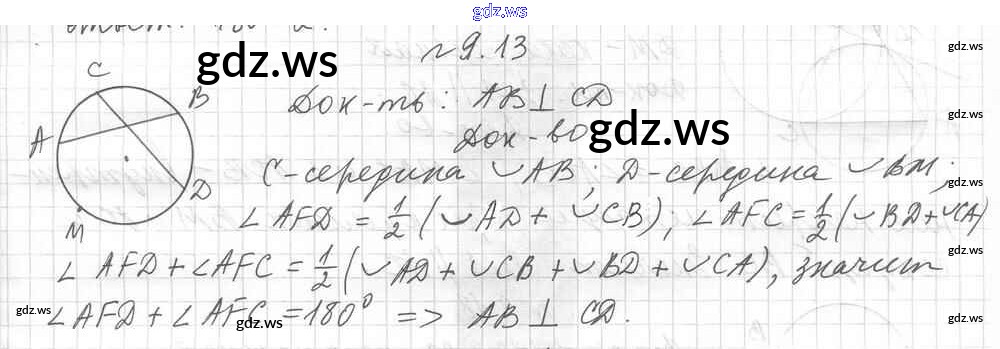 gdz.ws
№9.13
gdz.ws
C
B
A
D
M
Док-ть: AB⊥ CD
Док-во
gdz.ws
C-середина ◡AB; D-середина ◡BM;
∠AFD = 1/2(◡AD + ◡CB); ∠AFC = 1/2(◡BD+◡CA)
∠AFD+∠AFC = 1/2(◡AD + ◡CB + ◡BD + ◡CA), значит
∠AFD + ∠AFC = 180° => AB⊥ CD.
gdz.ws
gdz.ws
gdz.ws
gdz.ws
gdz.ws
gdz.ws